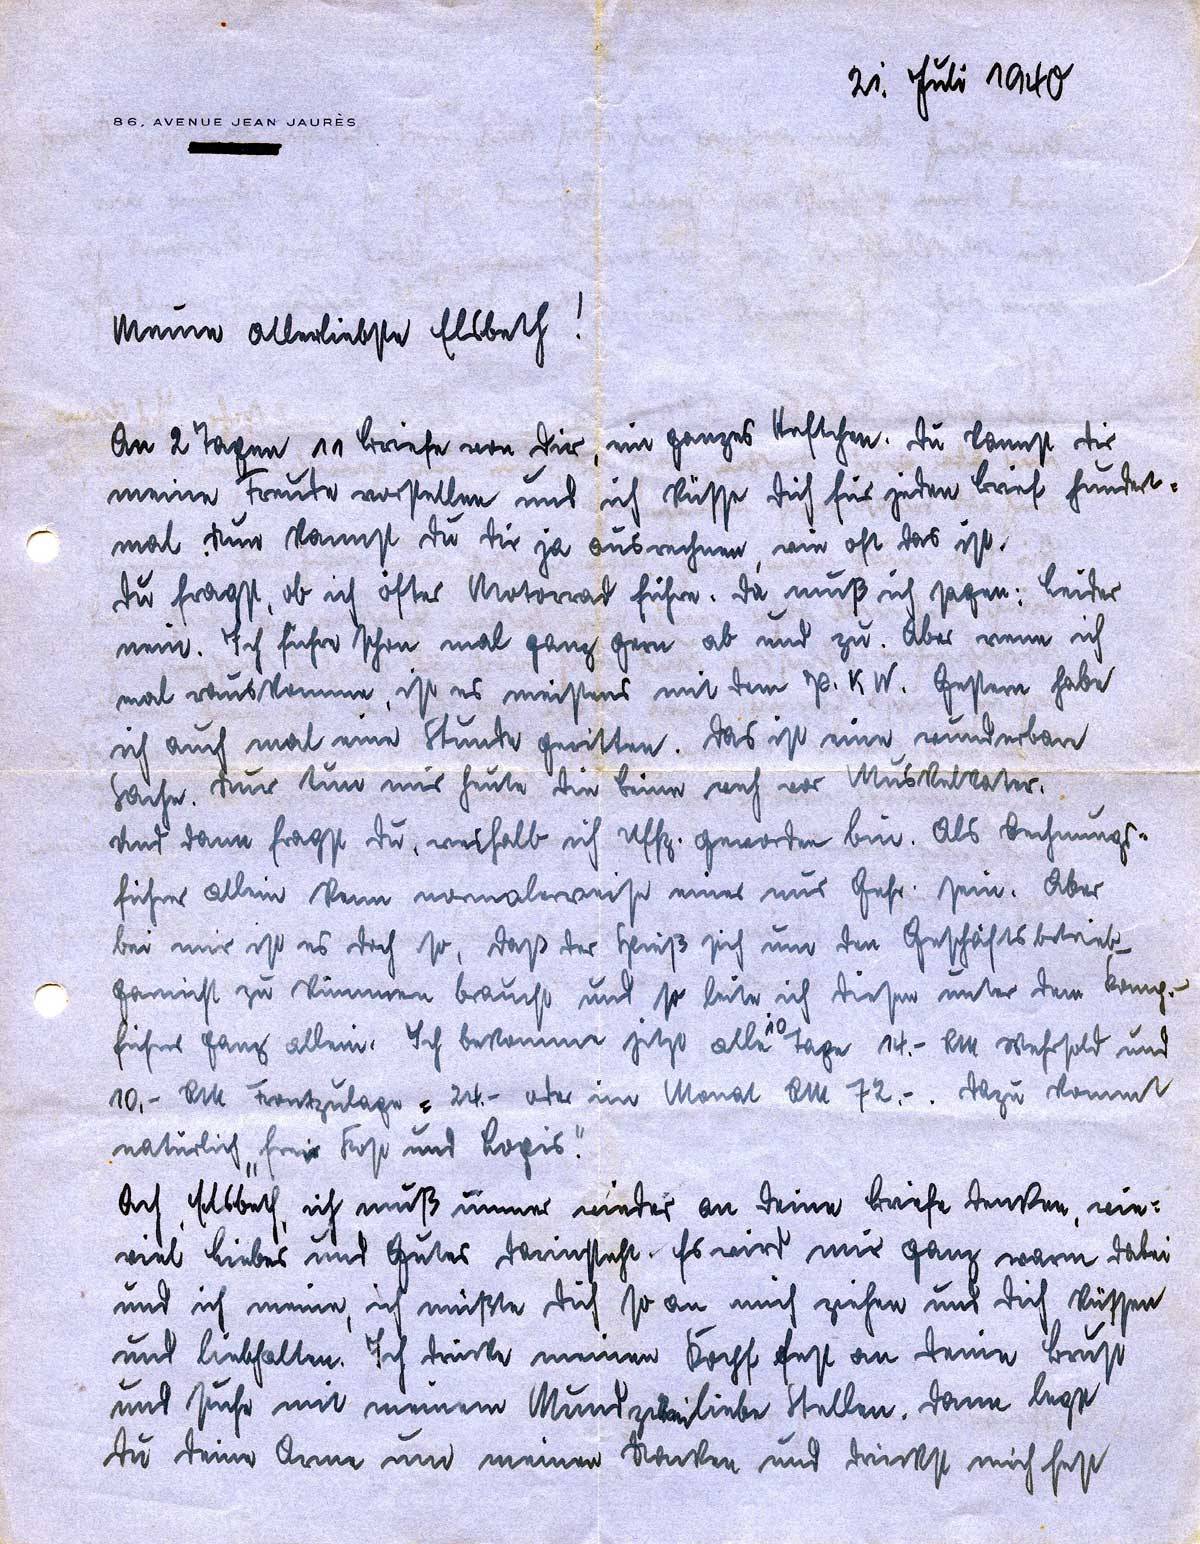 21. Juli 1940
86, AVENUE JEAN JAURÈS
Meine allerliebste Elsbeth!
An 2 Tagen 11 Briefe von Dir, ein ganzes Heftchen. Du kannst Dir
meine Freude vorstellen und ich küsse Dich für jeden Brief hundert=
mal. Nun kannst Du Dir ja ausrechnen, wie oft das ist.
Du fragst, ob ich öfter Motorrad führe. Da muß ich sagen: Leider
nein. Ich führe schon mal ganz gern ab und zu. Aber wenn ich
mal rauskomme, ist es meistens mit dem P.KW. Gestern habe
ich auch mal eine Stunde geritten. Das ist eine wunderbare
Sache. Nur tun mir heute die Beine weh vor Muskelkater.
Und dann fragst Du, weshalb ich Uffz. geworden bin. Als Rechnungs=
führer allein kann normalerweise einer nur Gefr. sein. Aber
bei mir ist es doch so, daß der Spieß sich um den Geschäftsbetrieb
garnicht zu kümmern braucht und so leite ich diesen unter dem Komp.-
führer ganz allein. Ich bekomme jetzt alle 10 Tage 14.- RM Wehrsold und
10.- RM Frontzulage = 24.- oder im Monat RM 72.-. Dazu kommt
natürlich „frei Kost und Logis".
Ach, Elsbeth, ich muß immer wieder an Deine Briefe denken, wie=
viel Liebes und Gutes darinsteht. Es wird mir ganz warm dabei
und ich meine, ich müßte Dich so an mich ziehen und Dich küssen
und liebhalten. Ich drücke meinen Kopf fest an Deine Brust
und suche mit meinem Mund zwei liebe Stellen. Dann legst
Du Deine Arme um meinen Nacken und drückst mich fest